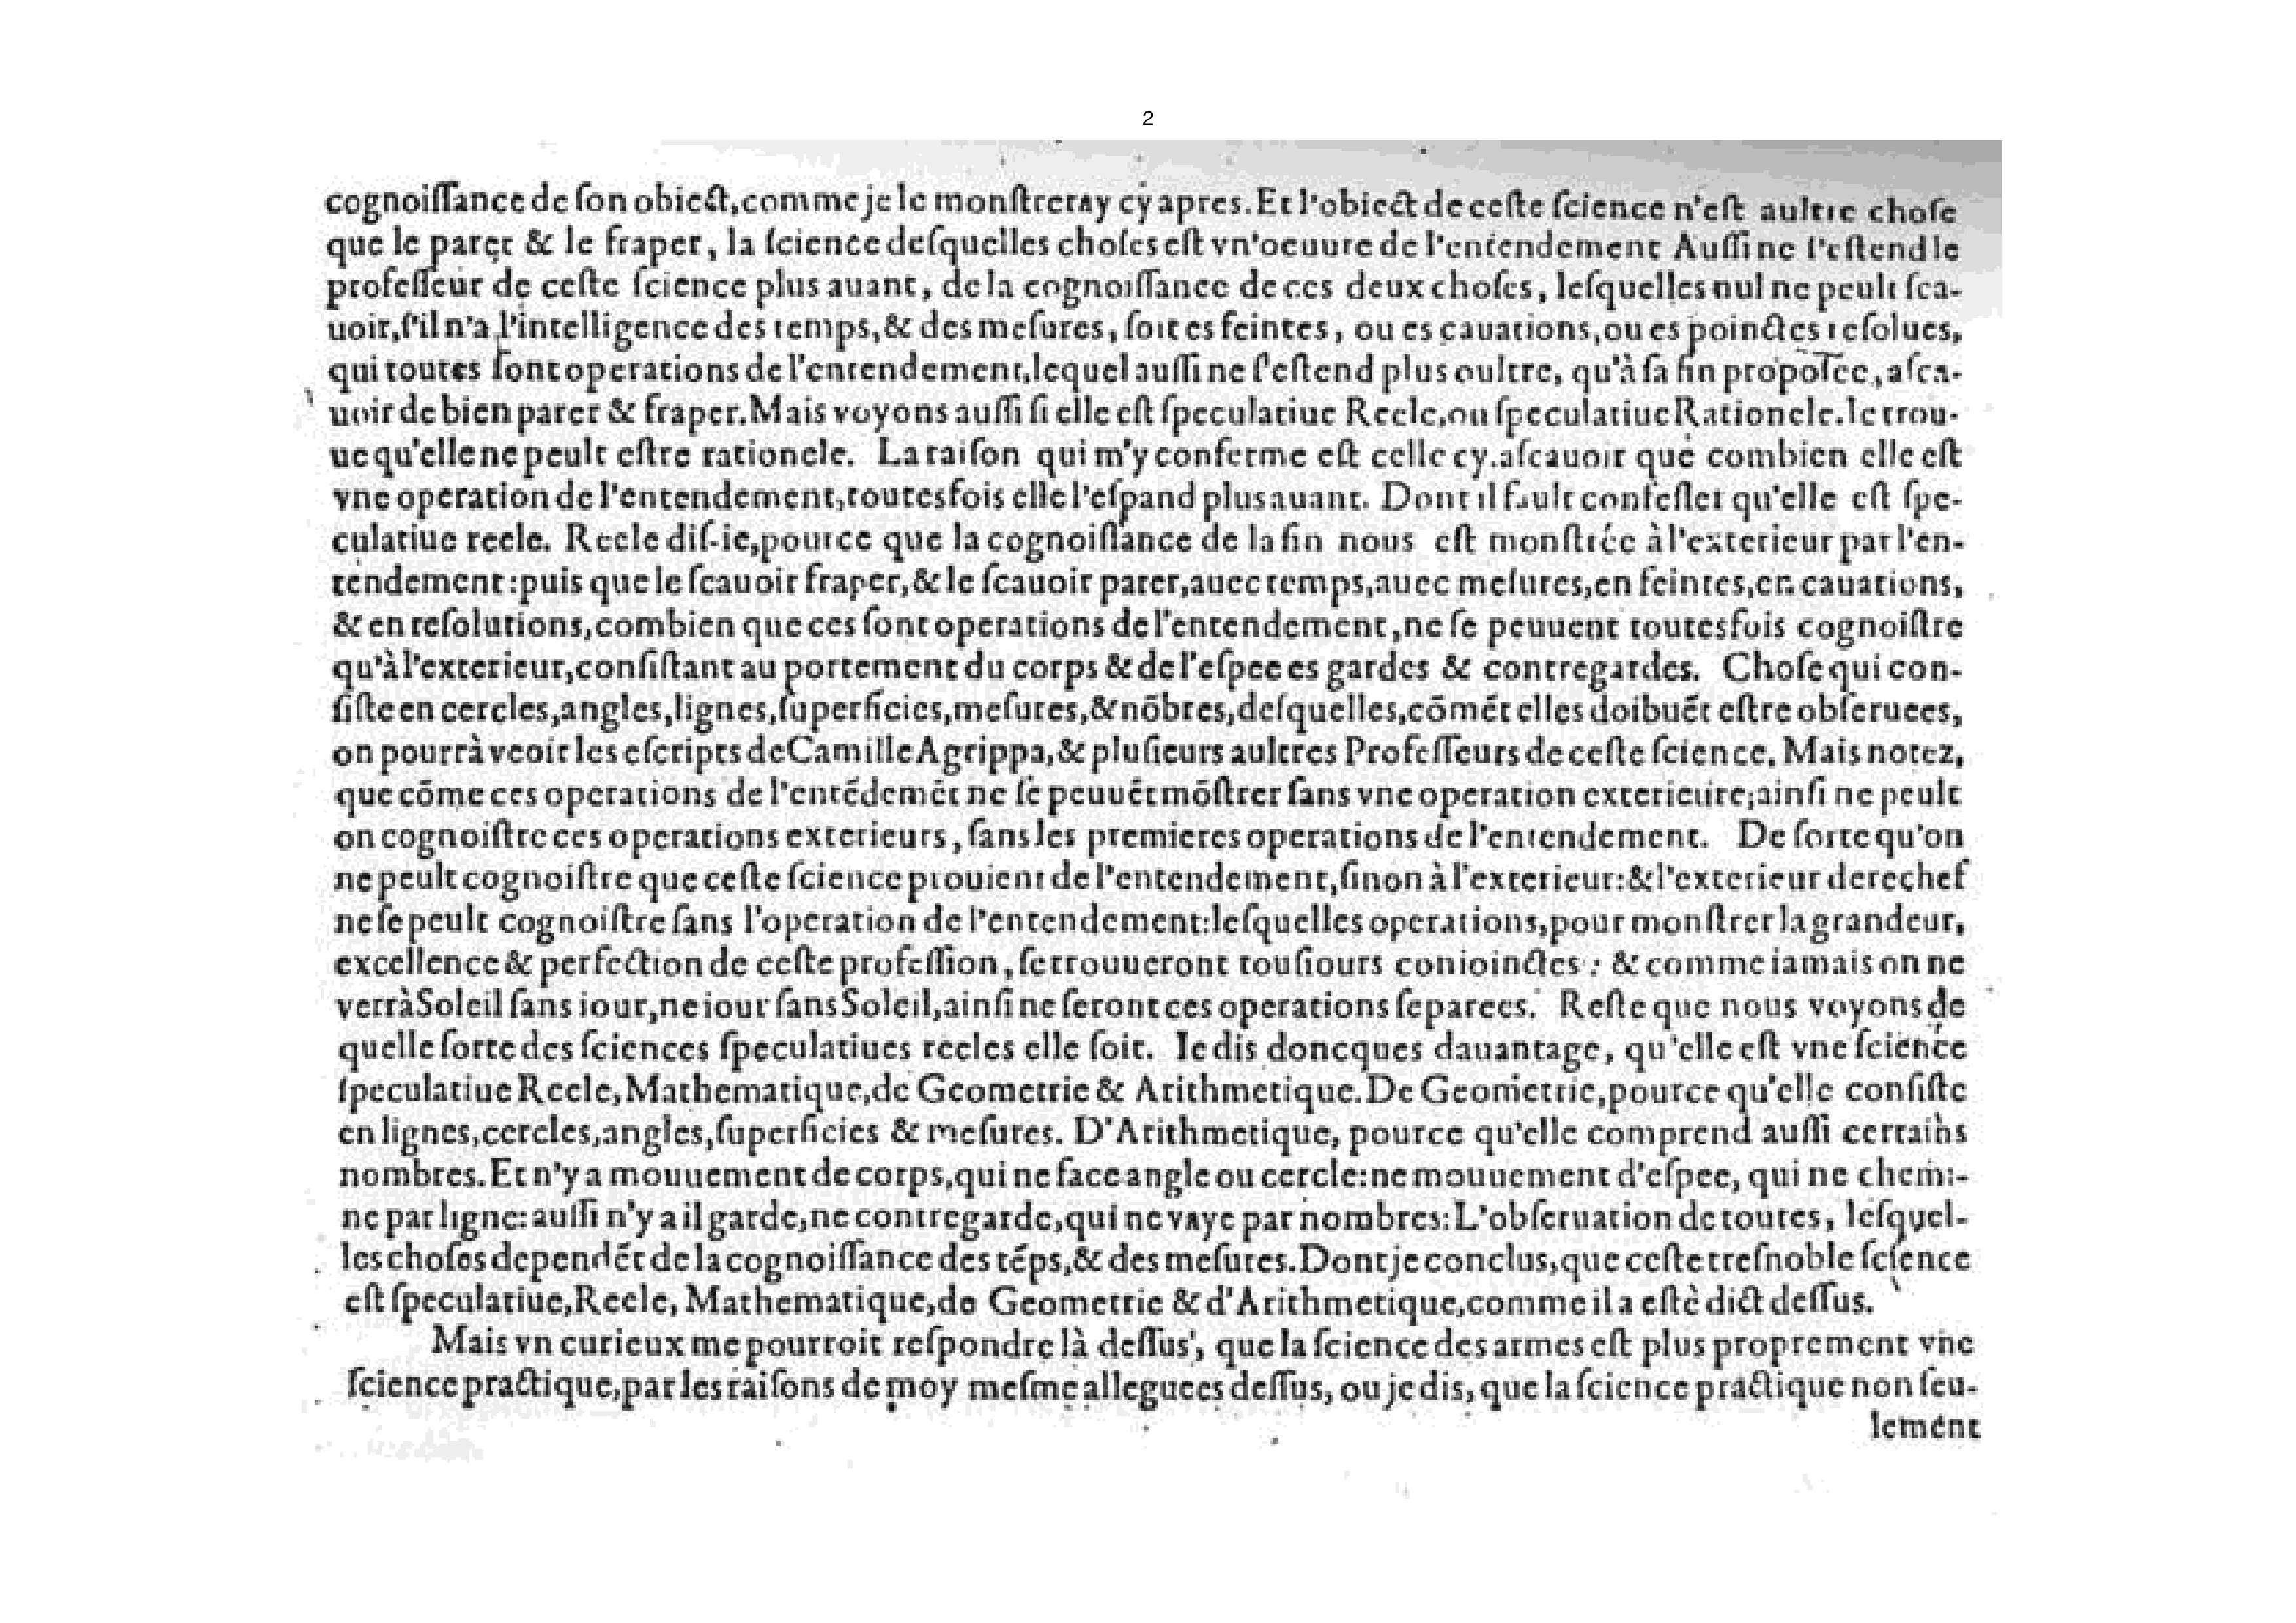 2
cognoiſſance de ſon obiect, comme je le monſtreray cy apres. Et l'obiect de ceſte ſcience n'eſt aultre choſe
que le parer & le fraper, la ſcience deſquelles choſes eſt vn'oeuure de l'entendement Auſſi ne ſ'eſtend le
profeſſeur de ceſte ſcience plus auant, de la cognoiſſance de ces deux choſes, leſquelles nul ne peult ſca-
uoir, ſ'il n'a l'intelligence des temps, & des meſures, ſoit es feintes, ou es cauations, ou es poinctes reſolues,
qui toutes ſont operations de l'entendement, lequel auſſi ne ſ'eſtend plus oultre, qu'à ſa fin propoſee, aſca-
uoir de bien parer & fraper. Mais voyons auſſi ſi elle eſt ſpeculatiue Reele, ou ſpeculatiue Rationele. Ie trou-
ue qu'elle ne peult eſtre rationele. La raiſon qui m'y conferme eſt celle cy. aſcauoir que combien elle eſt
vne operation de l'entendement, toutesfois elle l'eſpand plus auant. Dont il fault confeſſer qu'elle eſt ſpe-
culatiue reele. Reele diſ-ie, pource que la cognoiſſance de la fin nous eſt monſtrée à l'exterieur par l'en-
tendement: puis que le ſcauoir fraper, & le ſcauoir parer, auec temps, auec meſures, en feintes, en cauations,
& en reſolutions, combien que ces ſont operations de l'entendement, ne ſe peuuent toutesfois cognoiſtre
qu'à l'exterieur, conſiſtant au portement du corps & de l'eſpee es gardes & contregardes. Choſe qui con-
ſiſte en cercles, angles, lignes, ſuperficies, meſures, & nōbres, deſquelles, cōmēt elles doibuēt eſtre obſeruees,
on pourrà veoir les eſcripts de Camille Agrippa, & pluſieurs aultres Profeſſeurs de ceſte ſcience. Mais notez,
que cōme ces operations de l'entēdemēt ne ſe peuuēt mōſtrer ſans vne operation exterieure; ainſi ne peult
on cognoiſtre ces operations exterieurs, ſans les premieres operations de l'entendement. De ſorte qu'on
ne peult cognoiſtre que ceſte ſcience prouient de l'entendement, ſinon à l'exterieur: & l'exterieur derechef
ne ſe peult cognoiſtre ſans l'operation de l'entendement: leſquelles operations, pour monſtrer la grandeur,
excellence & perfection de ceſte profeſſion, ſe trouueront touſiours conioinctes: & comme iamais on ne
verrà Soleil ſans iour, ne iour ſans Soleil, ainſi ne ſeront ces operations ſeparees. Reſte que nous voyons de
quelle ſorte des ſciences ſpeculatiues reeles elle ſoit. Ie dis doncques dauantage, qu'elle eſt vne ſcience
ſpeculatiue Reele, Mathematique, de Geometrie & Arithmetique. De Geometrie, pource qu'elle conſiſte
en lignes, cercles, angles, ſuperficies & meſures. D'Arithmetique, pource qu'elle comprend auſſi certains
nombres. Et n'y a mouuement de corps, qui ne face angle ou cercle: ne mouuement d'eſpee, qui ne chemi-
ne par ligne: auſſi n'y a il garde, ne contregarde, qui ne vaye par nombres: L'obſeruation de toutes, leſquel-
les choſes dependēt de la cognoiſſance des tēps, & des meſures. Dont je conclus, que ceſte treſnoble ſcience
eſt ſpeculatiue, Reele, Mathematique, de Geometrie & d'Arithmetique, comme il a eſtè dict deſſus.
Mais vn curieux me pourroit reſpondre là deſſus, que la ſcience des armes eſt plus proprement vne
ſcience practique, par les raiſons de moy meſme alleguees deſſus, ou je dis, que la ſcience practique non ſeu-
lement